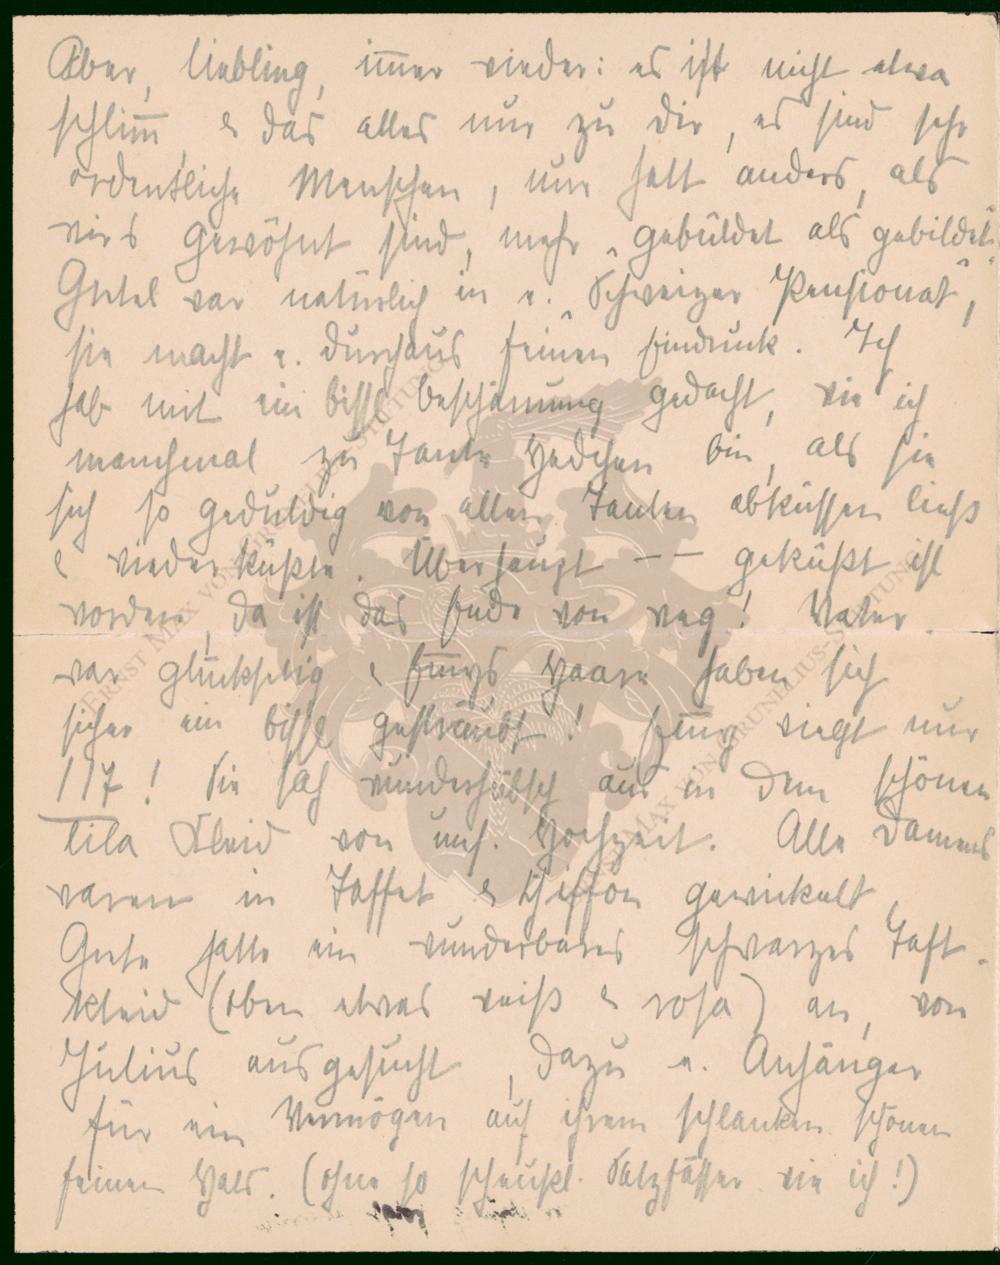 Aber, Liebling, im̅er wieder: es ist nicht etwa
schlim̅, & das alles nur zu Dir, es sind sehr
ordentliche Menschen, nur halt anders, als
wirs gewöhnt sind, mehr „gebüldet als gebildet“.
Gretel war natürlich in e. „Schweizer Pensionat“,
sie macht e. durchaus feinen Eindruck. Ich
hab mit ein bissl Beschämung gedacht, wie ich
manchmal zu Tante Hedchen bin, als sie
sich so geduldig von allen Tanten abküssen ließ
& wiederküßte. Überhaupt –– geküßt ist
worden, da ist das Ende von weg! Vater
war glückselig & Em̅ys Haare haben sich
sicher ein bissl gesträubt! Em̅y wiegt nur
117! Sie sah wunderhübsch aus in dem schönen
lila Kleid von uns. Hochzeit. Alle Damens
waren in Taffet & Chiffon gewickelt,
Grete hatte ein wunderbares schwarzes Taft-
kleid (oben etwas weiß & rosa) an, von
Julius ausgesucht, dazu e. Anhänger
für ein Vermögen auf ihrem schlanken schönen
feinen Hals. (ohne so scheußl. Salzfässer wie ich!)
ERNST MAX VON GRUNELIUS-STIFTUNG
ERNST MAX VON GRUNELIUS-STIFTUNG